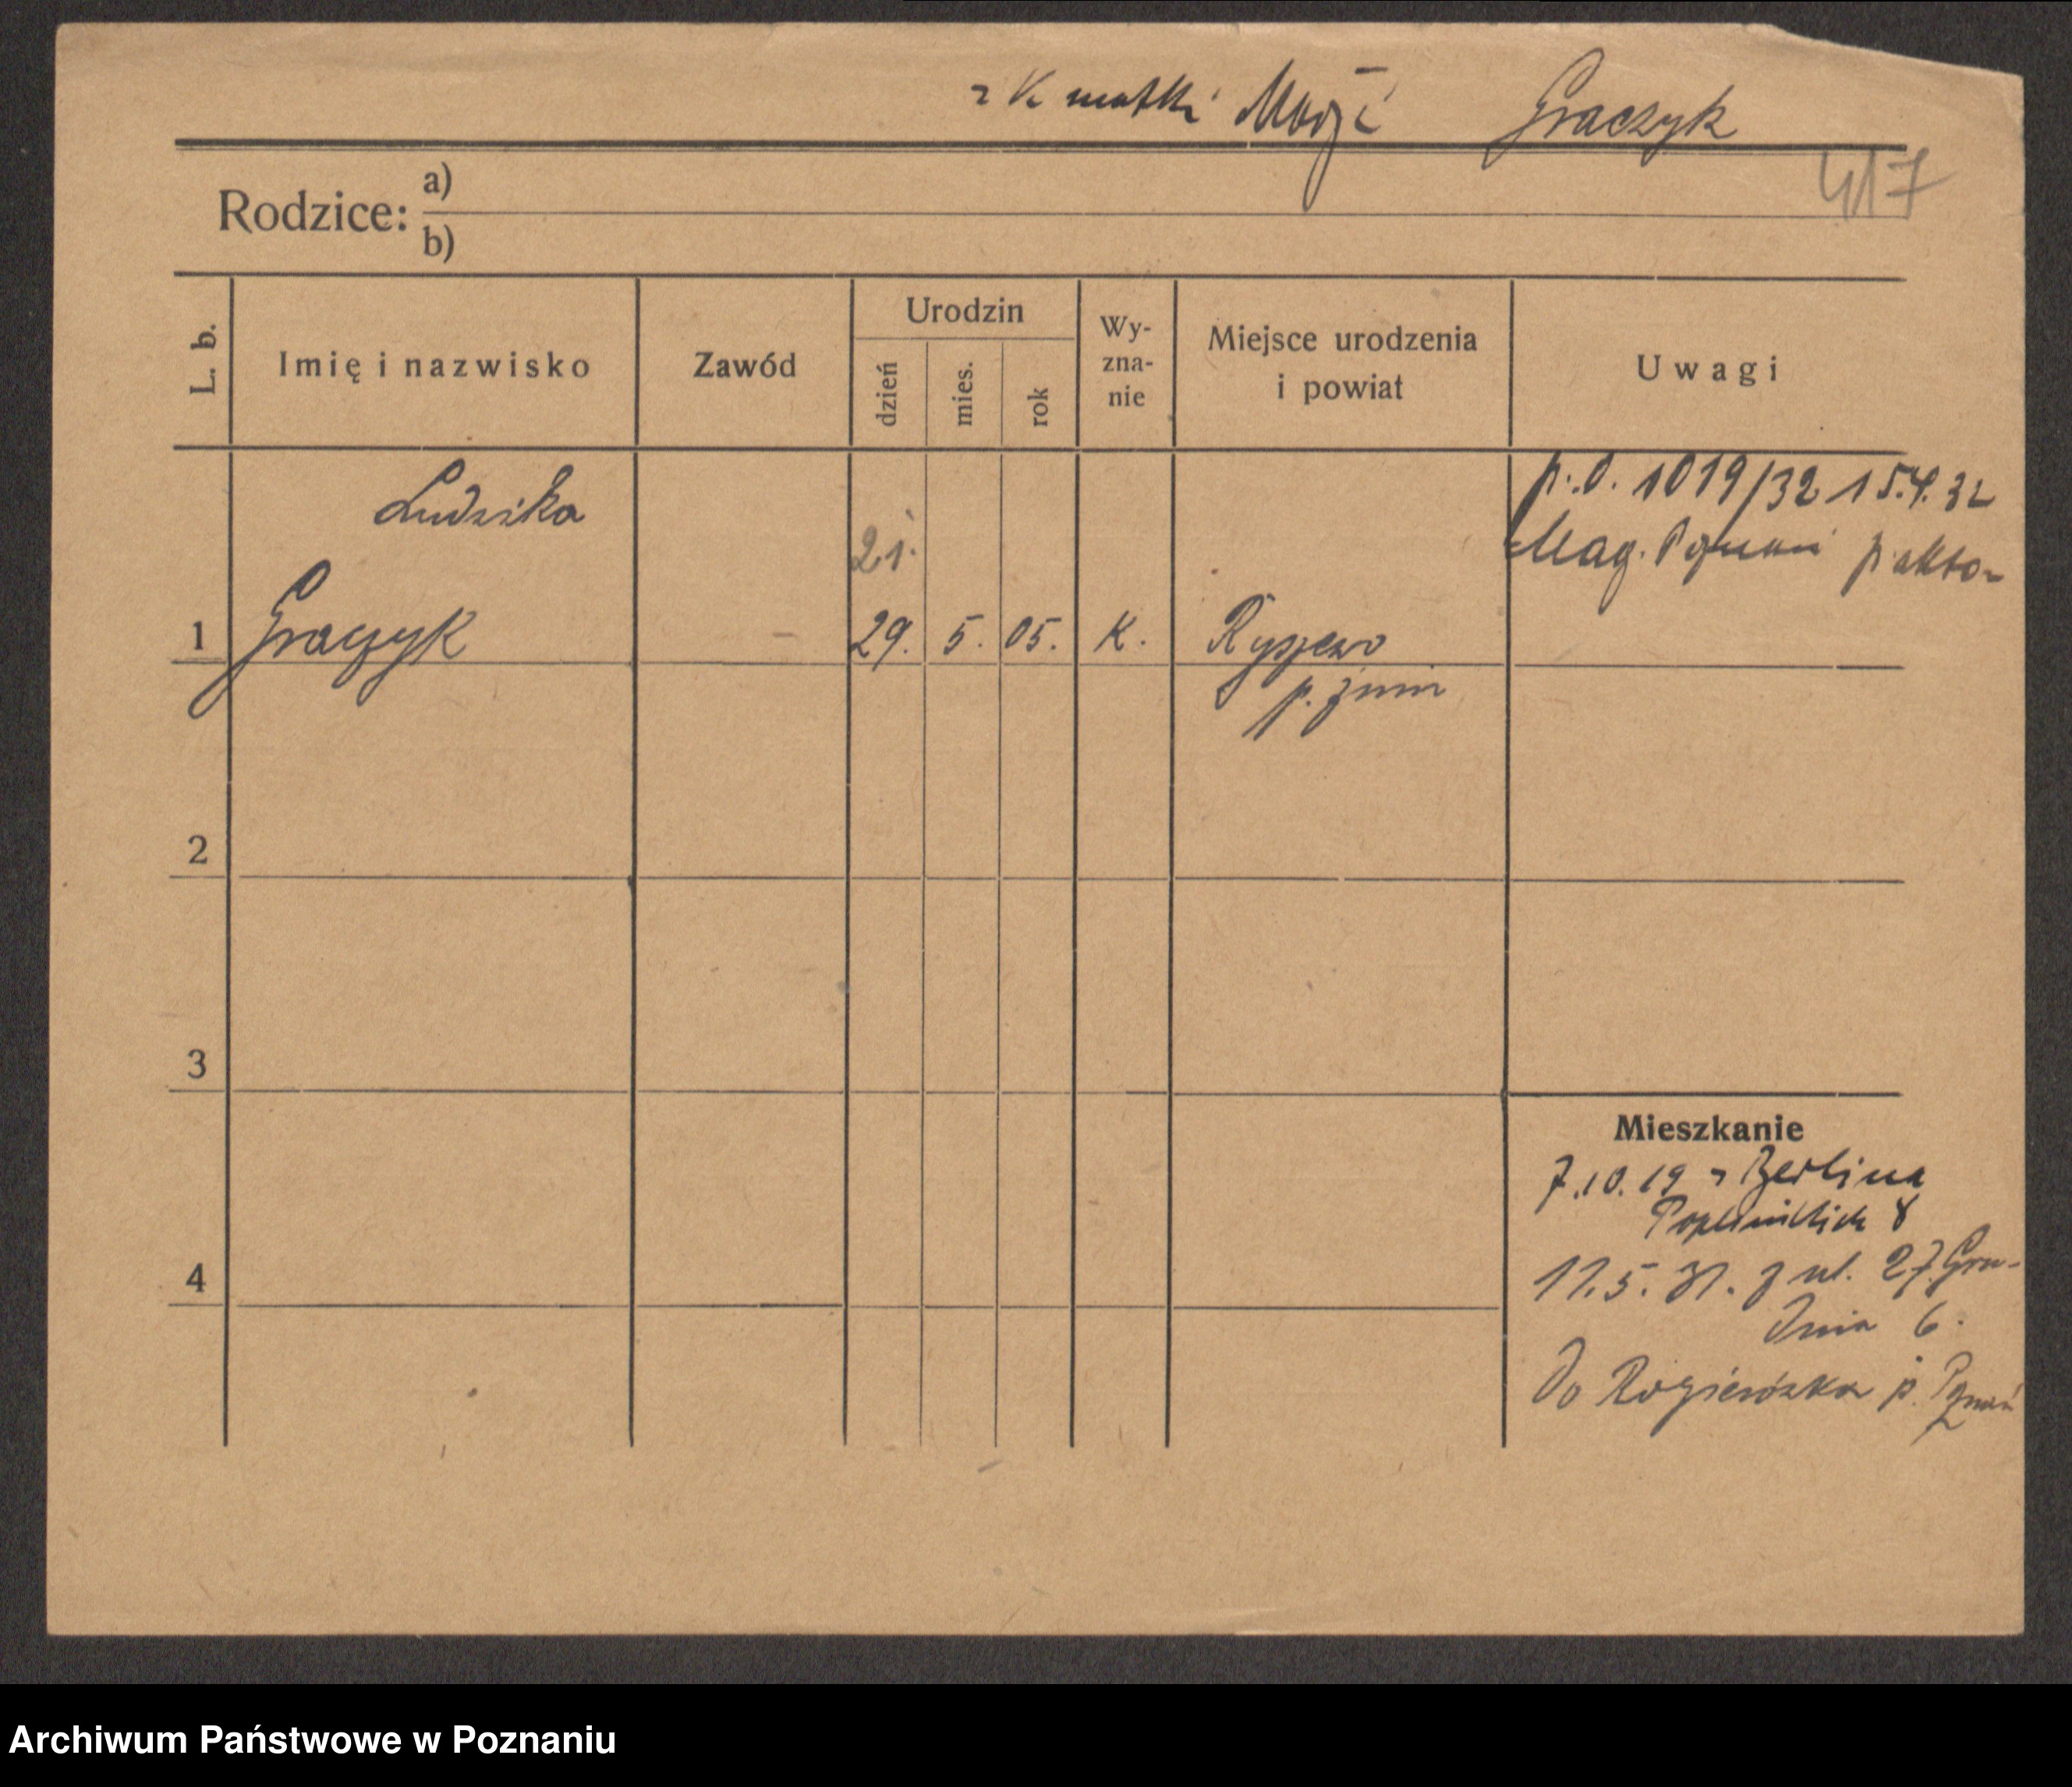 z K matki Marji Graczyk
417
Rodzice: a)
b)
L. b.
Imię i nazwisko
Zawód
Urodzin
dzień
mies.
rok
Wy-
zna-
nie
Miejsce urodzenia
i powiat
Uwagi
p.o. 1019/32 15.4.32
Mag. p. akto-
Ludwika
21.
1 Graczyk - 29. 5. 05. K. Ryszewo
p. Żnin
2
3
Mieszkanie
7.10.19 z Berlina
8
4
11.5.31. z ul. 27 Gru-
dnia 6.
do Rogierówka p. Poznań
Archiwum Państwowe w Poznaniu